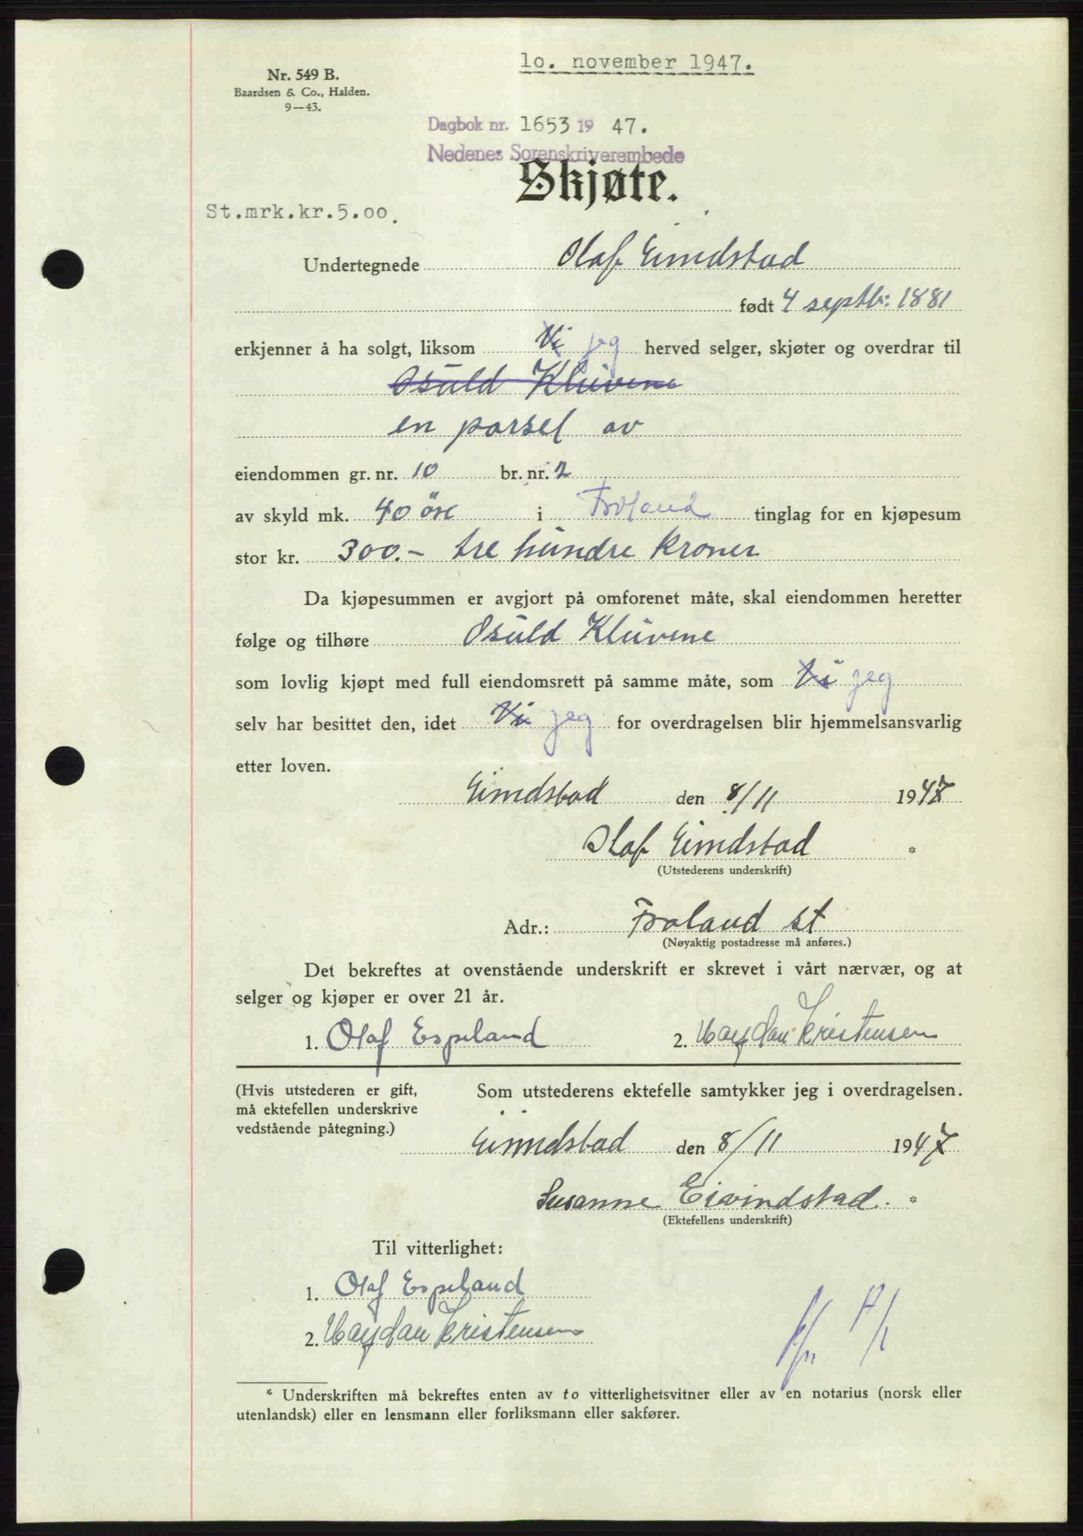 10. november 1947.
Nr. 549 B.
Baardsen & Co., Halden.
9—43.
Dagbok nr. 1653 19 47.
Nedenes Sorenskriverembede
Skjøte.
St.mrk.kr.5.00.
Undertegnede Olaf Eivindstad
født 4 septb: 1881
erkjenner å ha solgt, liksom Vi jeg herved selger, skjøter og overdrar til
Osuld Kluvene
en parsel av
eiendommen gr. nr. 10 br. nr. 2
av skyld mk. 40 öre i Froland tinglag for en kjøpesum
stor kr. 300.- tre hundre kroner
Da kjøpesummen er avgjort på omforenet måte, skal eiendommen heretter
følge og tilhøre Osuld Kluvene
som lovlig kjøpt med full eiendomsrett på samme måte, som Vi jeg
selv har besittet den, idet Vi jeg for overdragelsen blir hjemmelsansvarlig
etter loven.
Eivindstad den 8/11 1947
Olaf Eivindstad *
(Utstederens underskrift)
Adr.: Froland st
(Nøyaktig postadresse må anføres.)
Det bekreftes at ovenstående underskrift er skrevet i vårt nærvær, og at
selger og kjøper er over 21 år.
1. Olaf Espeland 2. Haldan Kristensen
(Hvis utstederen er gift,
må ektefellen underskrive
vedstående påtegning.)
Som utstederens ektefelle samtykker jeg i overdragelsen.
Eivindstad den 8/11 1947
Susanne Eivindstad. *
(Ektefellens underskrift)
Til vitterlighet:
1. Olaf Espeland
2. Haldan Kristensen
* Underskriften må bekreftes enten av to vitterlighetsvitner eller av en notarius (norsk eller
utenlandsk) eller en lensmann eller forliksmann eller sakfører.